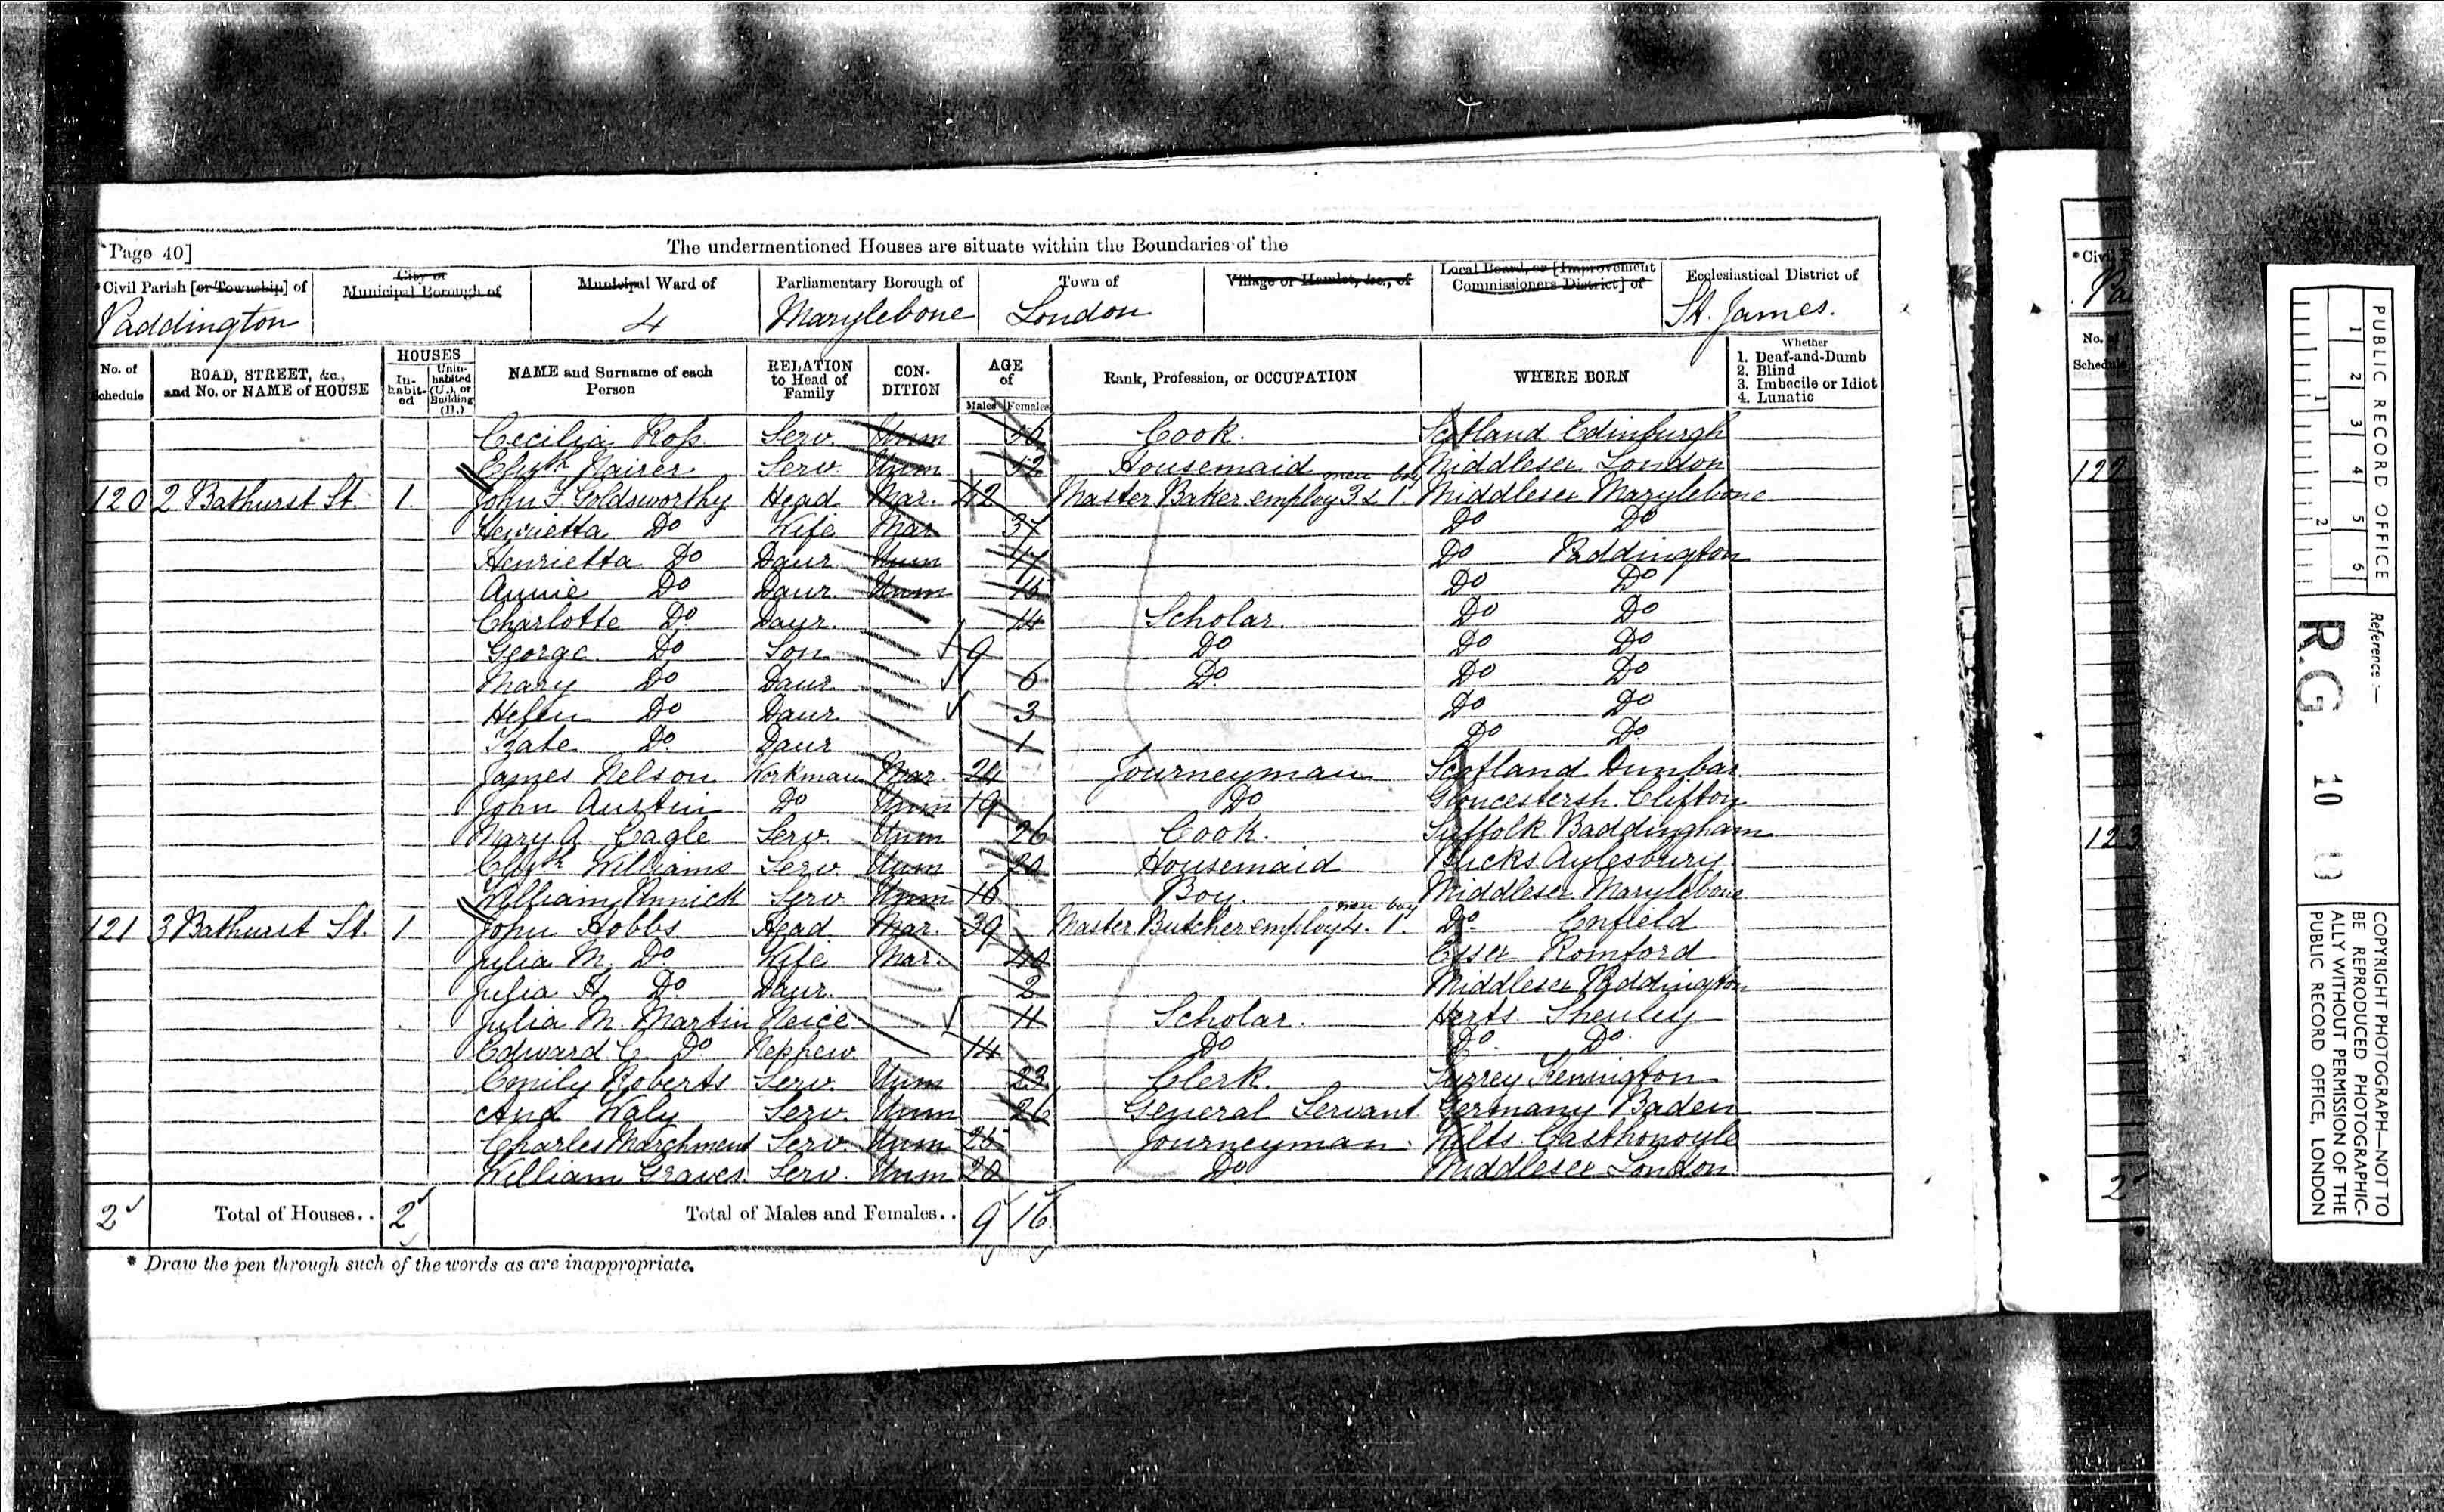 Page 40]
The undermentioned Houses are situate within the Boundaries of the
*Civil Parish [or Township] of City or Municipal Borough of Municipal Ward of Parliamentary Borough of Town of Village or Hamlet, &c., of Local Board, or [Improvement Commissioners District] of Ecclesiastical District of
Paddington 4 Marylebone London St. James.
No. of Schedule ROAD, STREET, &c., and No. or NAME of HOUSE HOUSES In-habit-ed Unin-habited (U.), or Building (B.) NAME and Surname of each Person RELATION to Head of Family CON-DITION AGE of Males Females Rank, Profession, or OCCUPATION WHERE BORN Whether 1. Deaf-and-Dumb 2. Blind 3. Imbecile or Idiot 4. Lunatic
Cecilia Ross Serv. Unm Cook. Scotland Edinburgh
Elizth Serv. Unm 52 Housemaid Middlesex London
120 2 Bathurst St. 1. John F. Goldsworthy Head Mar. 42 Master Baker employ 3 men & 1 boy Middlesex Marylebone
Henrietta Do Wife Mar 37 Do Do
Henrietta Do Daur Unm 17 Do Paddington
Annie Do Daur. Unm Do Do
Charlotte Do Daur. 14 Scholar Do Do
George Do Son 9 Do Do Do
Mary Do Daur 6 Do Do Do
Helen Do Daur 3 Do Do
Kate Do Daur 1 Do Do
James Nelson Workman Mar. 24 Journeyman Scotland Dunbar
John Austin Do Unm 19 Do Gloucestersh. Clifton
Mary A. Cagle Serv. Unm 26 Cook. Suffolk Baddingham
Elizth Williams Serv Unm 20 Housemaid Bucks Aylesbury
William Serv Unm 16 Boy. Middlesex Marylebone
121 3 Bathurst St. 1 John Hobbs Head Mar. 39 Master Butcher employ 4 men 1 boy Do. Enfield
Julia M. Do Wife Mar. 40 Essex Romford
Julia H. Do Daur. 2 Middlesex Paddington
Julia M. Martin Neice 11 Scholar. Herts Shenley
Edward C. Do Nephew 14 Do Do Do.
Emily Roberts Serv. Unm 23 Clerk. Surrey Kennington
Ana Waly Serv. Unm 26 General Servant Germany Baden
Charles Marchment Serv. Unm 25 Journeyman Wilts
William Graves. Serv. Unm 20 Do Middlesex London
2 Total of Houses.. 2 Total of Males and Females.. 9 16
* Draw the pen through such of the words as are inappropriate.
* Civil P
Pa
No. of
Schedule
122
123
2
PUBLIC RECORD OFFICE
1 2 3 4 5 6
1 2
Reference :—
R.G. 10
COPYRIGHT PHOTOGRAPH—NOT TO
BE REPRODUCED PHOTOGRAPHIC-
ALLY WITHOUT PERMISSION OF THE
PUBLIC RECORD OFFICE, LONDON